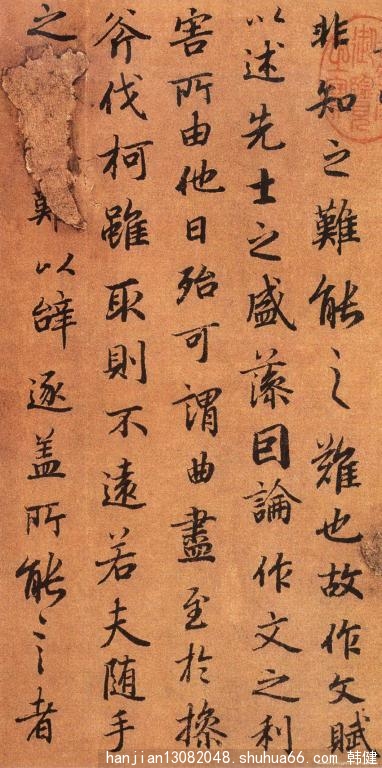 非知之難能之難也故作文賦
以述先士之盛藻因論作文之利
害所由他日殆可謂曲盡至於操
斧伐柯雖取則不遠若夫随手
之難以辞逐盖所能言者
hanjian13082048.shuhua66.com 韩健